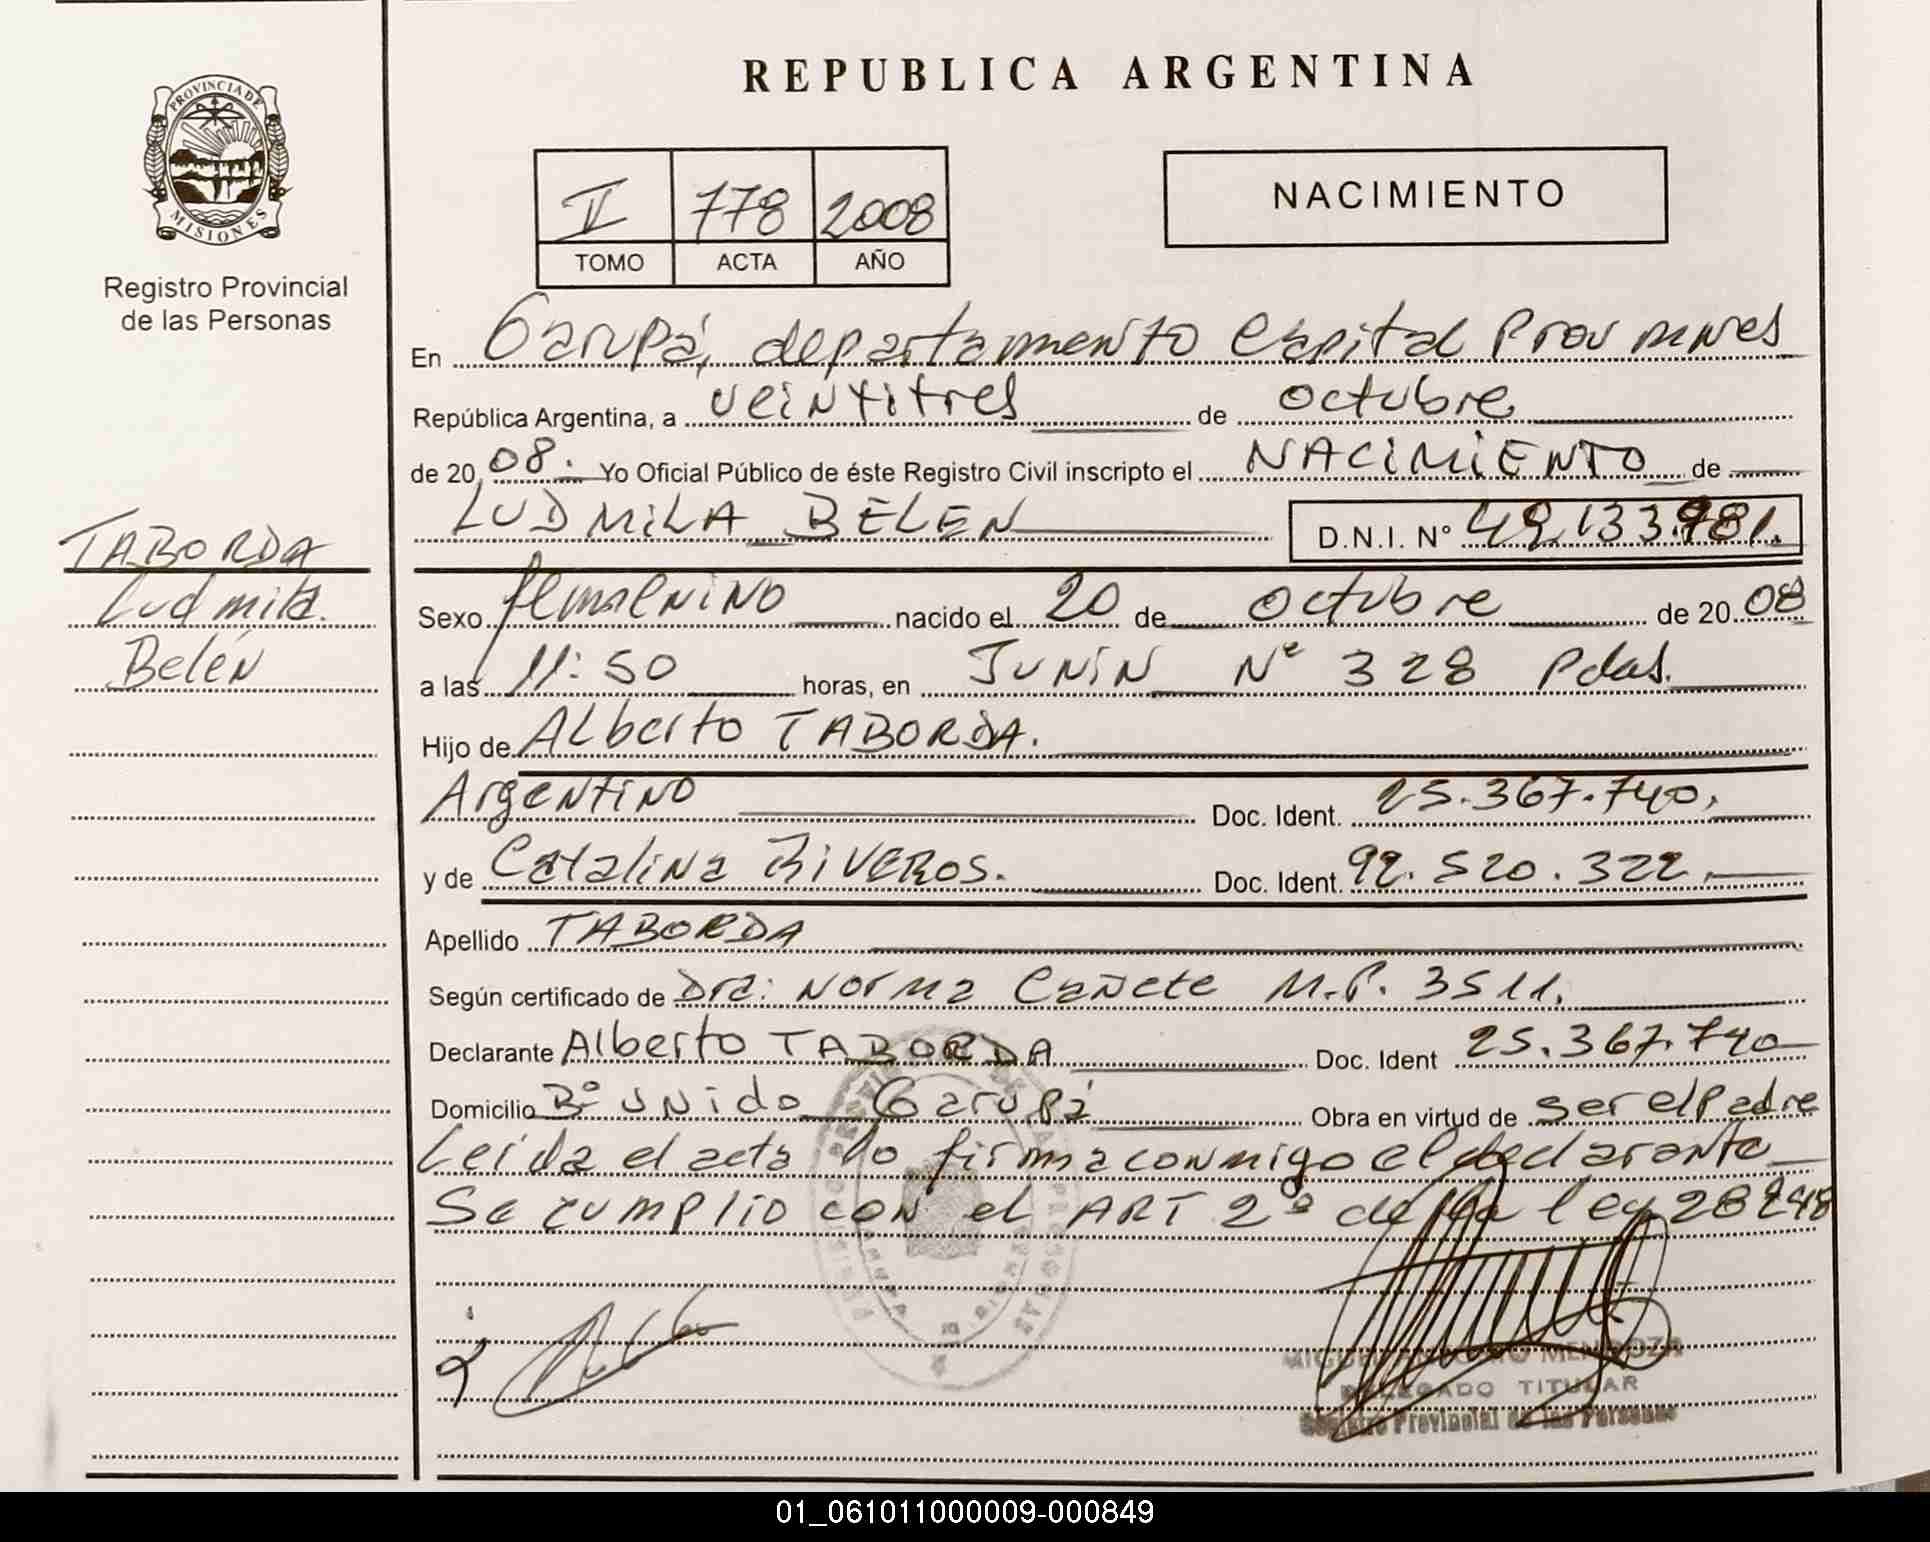 REPUBLICA ARGENTINA
PROVINCIA DE
MISIONES
Registro Provincial
de las Personas
II 778 2008
TOMO ACTA AÑO
NACIMIENTO
En Garupá, departamento Capital Prov
República Argentina, a veintitres de octubre
de 20 08. Yo Oficial Público de éste Registro Civil inscripto el NACIMIENTO de
LUDMILA BELEN D.N.I. Nº 49.133.981.
TABORDA
Ludmila
Belén
Sexo femenino nacido el 20 de octubre de 20 08
a las 11:50 horas, en JUNIN Nº 328 Pdas.
Hijo de Alberto TABORDA.
Argentino Doc. Ident. 25.367.740,
y de Catalina RIVEROS. Doc. Ident. 92.520.322,
Apellido TABORDA
Según certificado de Dra: Norma Cañete M.P. 3511.
Declarante Alberto TABORDA Doc. Ident 25.367.740
Domicilio Bº UNido Garupá Obra en virtud de ser el padre
Leida el acta lo firma conmigo el declarante
Se cumplio con el ART 2º de la ley
MIGUEL ANTONIO MENDOZA
DELEGADO TITULAR
Registro Provincial de las Personas
01_061011000009-000849